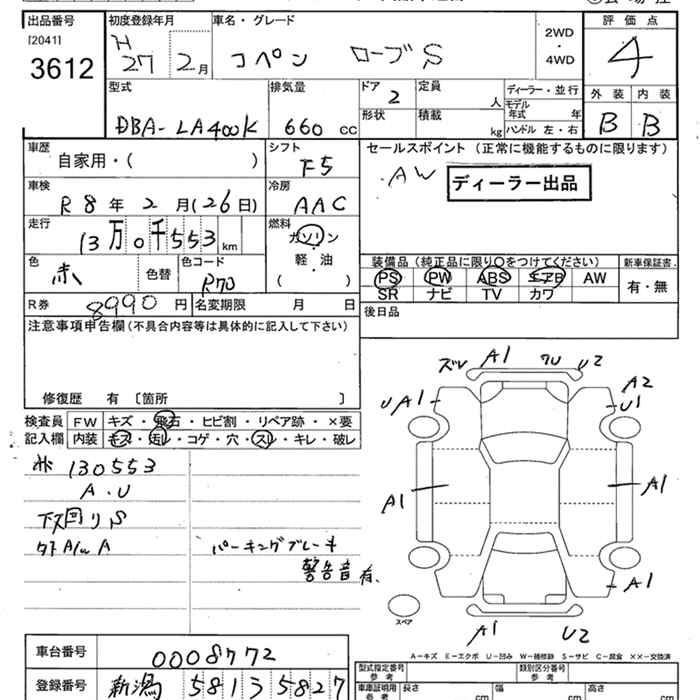 出品番号 初度登録年月 車名・グレード 2WD・4WD 評価点
[2041] H 27年 2月 コペン ローブS 4
3612
型式 排気量 ドア 定員 ディーラー・並行 外装 内装
DBA-LA400K 660 cc 2 人 モデル年式 年 B B
形状 積載 kg ハンドル 左・右
車歴 シフト セールスポイント (正常に機能するものに限ります)
自家用・( ) F5 AW ディーラー出品
車検 冷房
R8年2月(26日) AAC
走行 燃料
13万0千553km ガソリン
軽・油
( )
色 色替 色コード 装備品(純正品に限り○をつけてください) 新車保証書
赤 R70 PS PW ABS エアB AW 有・無
SR ナビ TV カワ
R券 8990円 名変期限 月 日 後日品
注意事項申告欄(不具合内容等は具体的に記入して下さい)
修復歴 有 〔箇所 〕
検査員 FW キズ・飛石・ヒビ割・リペア跡・×要
記入欄 内装 キズ・汚レ・コゲ・穴・スレ・キレ・破レ
ズレ A1 ワレ U2
A2
UA1 U1
A1 A1
A1
A1 U2
スペア
130553
A・U
下回りS
外A/W A
パーキングブレーキ
警告音有.
A-キズ E-エクボ U-凹み W-補修跡 S-サビ C-腐食 XX-交換済
車台番号 0008772 型式指定番号 参考 類別区分番号 参考
登録番号 新潟 581 3 5827 車庫証明用 参考 長さ cm 幅 cm 高さ cm